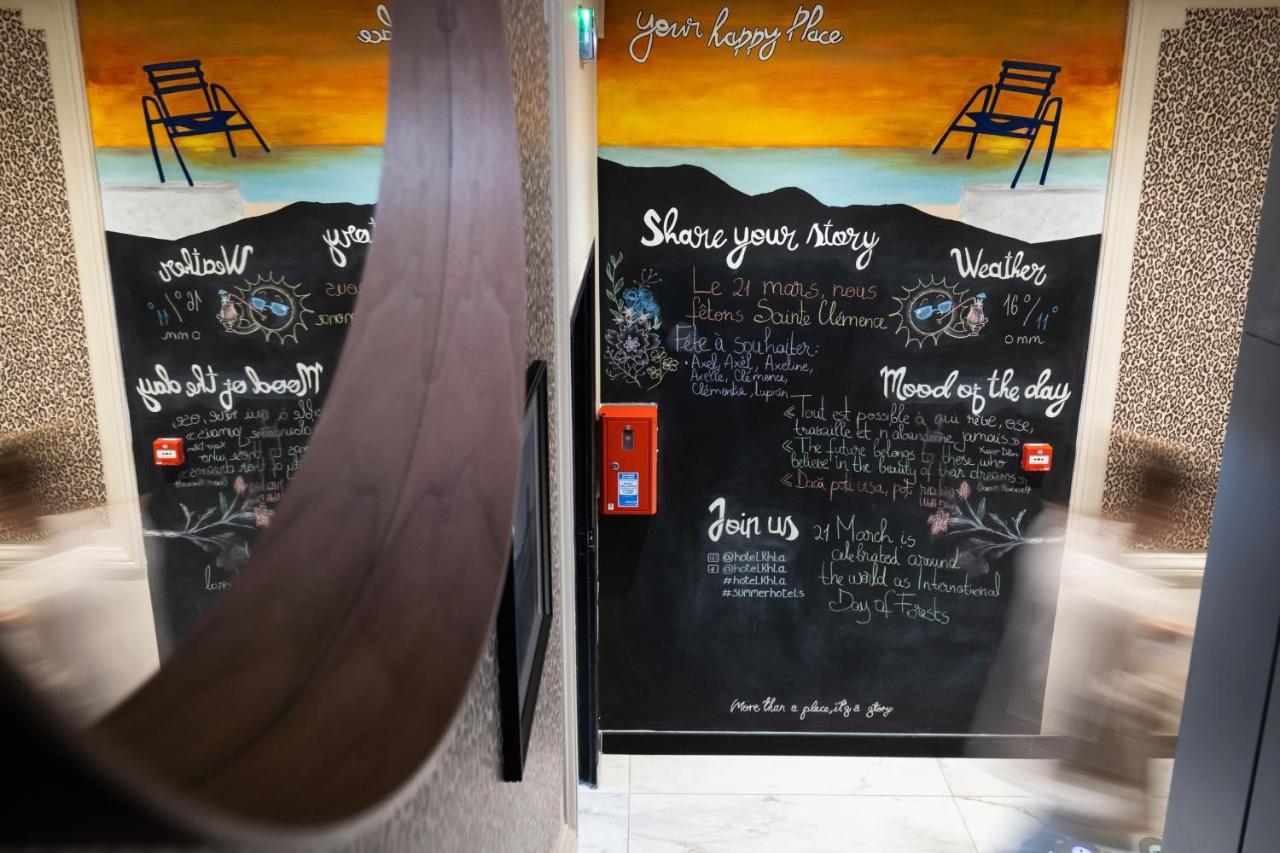 your happy Place
Share your story
Le 21 mars, nous
fêtons Sainte Clémence
Fête à souhaiter:
• Axel, Axél, Axeline,
Axelle, Clémence,
Clémentia, Lupicin
Weather
16°/11°
0 mm
Mood of the day
«Tout est possible à qui rêve, ose,
travaille et n'abandonne jamais.»
Xavier Dolan
«The future belongs to those who
believe in the beauty of their dreams»
Eleanor Roosevelt
«Dacă poți visa, poți
Join us
@hotel.Khla
@hotel.Khla
#hotel.Khla
#summerhotels
21 March is
celebrated around
the world as International
Day of Forests
More than a place, it's a story